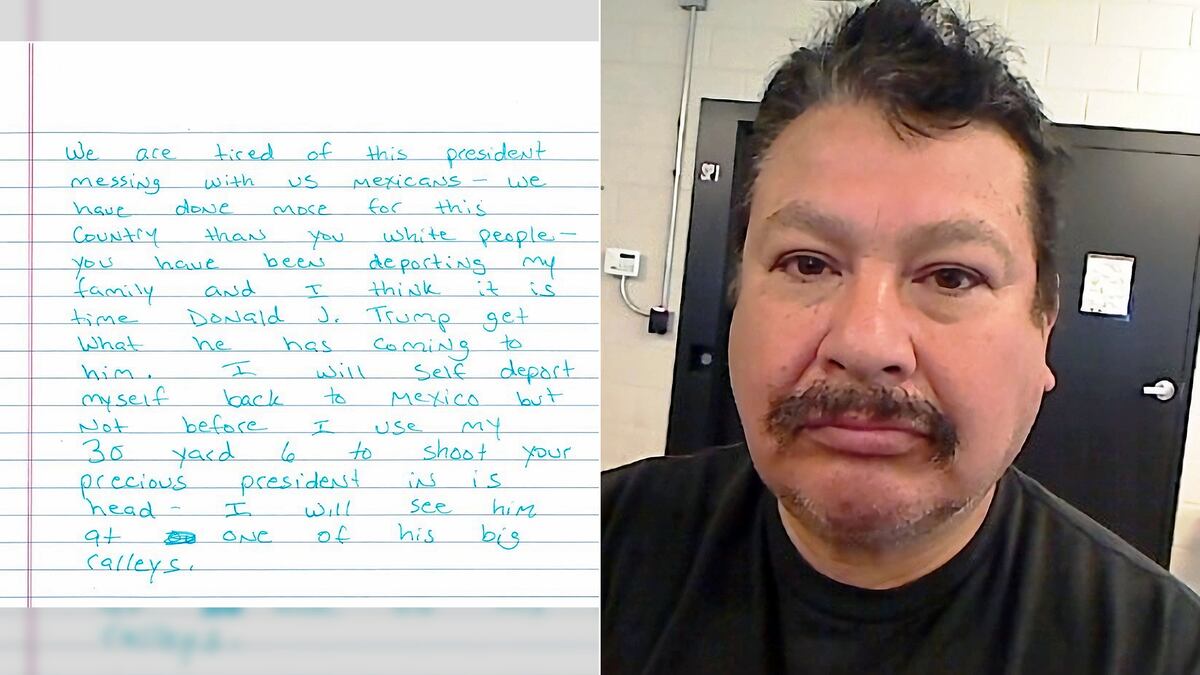 We are tired of this president
messing with us mexicans – we
have done more for this
Country than you white people –
you have been deporting my
family and I think it is
time Donald J. Trump get
what he has coming to
him. I will self deport
myself back to Mexico but
not before I use my
30 yard 6 to shoot your
precious president in is
head – I will see him
at one of his big
ralleys.